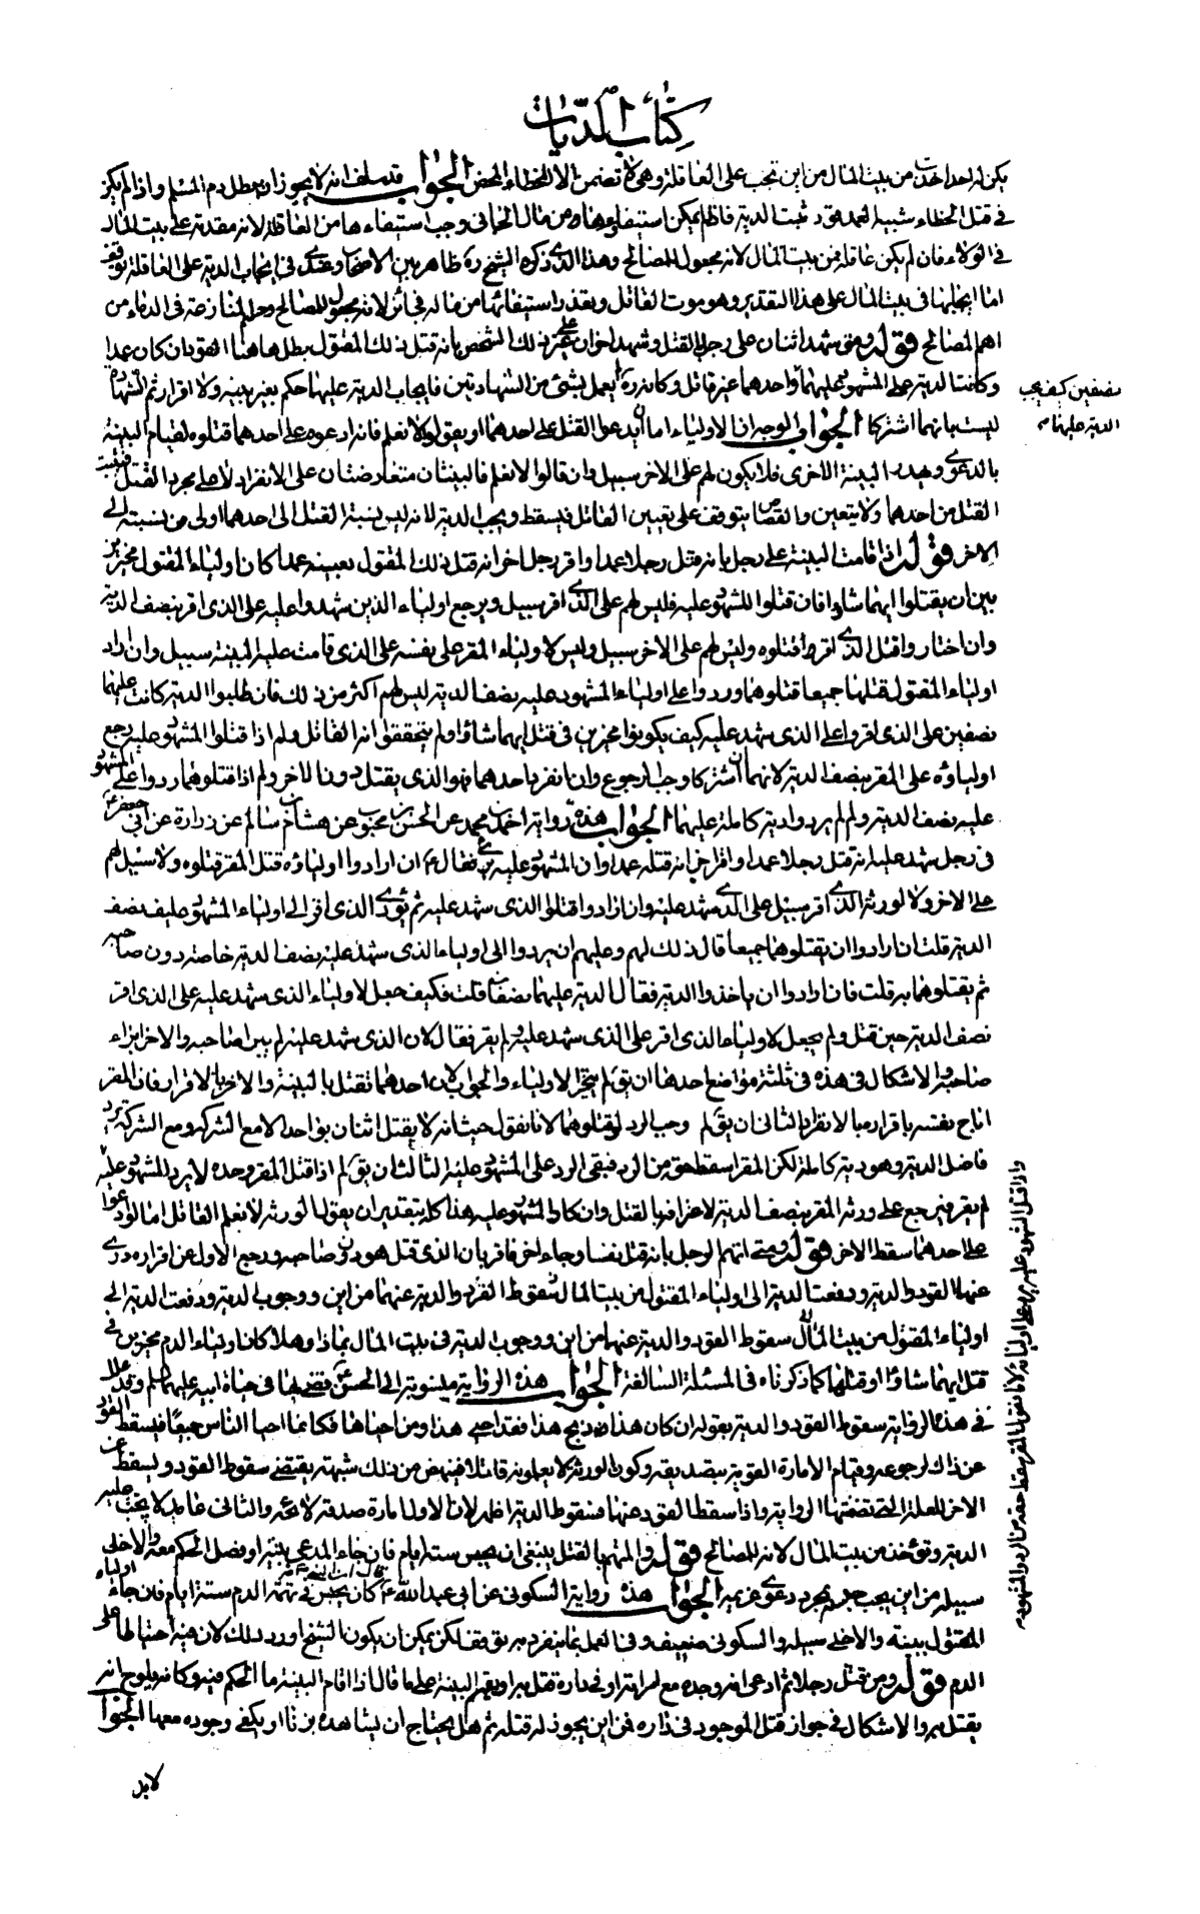 كتاب الديات
يكن له احد اخذت من بيت المال من اين تجب على العاقلة وهي لا تضمن الا الخطاء المحض الجواب قد سلف انه لا يجوز ان يبطل دم المسلم واذا لم يكن
في قتل الخطاء شبيه العمد قود ثبت الدية فاذا لم يمكن استيفاؤها من مال الجاني وجب استيفاءها من العاقلة لانه مقدمة على بيت المال
في الولاء فان لم يكن عاقلة فمن بيت المال لانه مجعول للمصالح وهذا الذي ذكره الشيخ ره ظاهر بين الاصحاب وعندي في ايجاب الدية على العاقلة توقف
اما ايجابها في بيت المال على هذا التقدير وهو موت القاتل وتعذر استيفائها من ماله فجائز لانه مجعول للمصالح وحسم المنازعة في الدماء من
اهم المصالح قوله ومتى شهد اثنان على رجل بالقتل وشهد اخران على غير ذلك الشخص بانه قتل ذلك المقتول بطل هاهنا القود ان كان عمدا
وكانت الدية على المشهود عليهما واحدهما غير قاتل وكانه ره لم يعمل بشئ من الشهادتين فايجاب الدية عليهما حكم بغير بينة ولا اقرار ثم الشهادة
ليست بانهما اشتركا الجواب الوجه ان الاولياء اما ان يدعوا القتل على احدهما او يقولوا لا نعلم فان ادعوه على احدهما قتلوه لقيام البينة
بالدعوى وتهدر البينة الاخرى فلا يكون لهم على الاخر سبيل وان قالوا لا نعلم فالبينتان متعارضتان على الانفراد لا على مجرد القتل فيثبت
القتل من احدهما ولا يتعين والقصاص يتوقف على تعيين القاتل فيسقط ويجب الدية لانه ليس نسبة القتل الى احدهما اولى من نسبته الى
الاخر قوله اذا قامت البينة على رجل بانه قتل رجلا عمدا واقر رجل اخر انه قتل ذلك المقتول بعينه عمدا كان اولياء المقتول مخيرين
بين ان يقتلوا ايهما شاؤا فان قتلوا المشهود عليه فليس لهم على الذي اقر سبيل ويرجع اولياء الذين شهدوا عليه على الذي اقر بنصف الدية
وان اختاروا قتل الذي اقر قتلوه وليس لهم على الاخر سبيل وليس لاولياء المقر على نفسه على الذي قامت عليه البينة سبيل وان اراد
اولياء المقتول قتلهما جميعا قتلوهما وردوا على اولياء المشهود عليه نصف الدية ليس لهم اكثر من ذلك فان طلبوا الدية كانت عليهما
نصفين على الذي اقر وعلى الذي شهد عليه كيف يكونوا مخيرين في قتل ايهما شاؤا ولم يتحققوا انه القاتل ولم اذا قتلوا المشهود عليه رجع
اولياؤه على المقر بنصف الدية لانهما ان اشتركا وجب الرجوع وان انفرد احدهما فهو الذي يقتل دون الاخر ولم اذا قتلوهما ردوا على المشهود
عليه نصف الدية ولم لم يردوا دية كاملة عليهما الجواب هذه رواية احمد بن محمد عن الحسن بن محبوب عن هشام بن سالم عن زرارة عن ابي جعفر ع
في رجل شهد عليه انه قتل رجلا عمدا واقر اخر انه قتله عمدا وان المشهود عليه برئ فقال ع ان ارادوا اولياؤه قتل المقر قتلوه ولا سبيل لهم
على الاخر ولا لورثة الذي اقر سبيل على الذي شهد عليه وان ارادوا قتلوا الذي شهد عليه ثم يؤدي الذي اقر الى اولياء المشهود عليه نصف
الدية قلت ان ارادوا ان يقتلوهما جميعا قال ذلك لهم وعليهم ان يردوا الى اولياء الذي شهد عليه نصف الدية خاصة دون صاحبه
ثم يقتلوهما به قلت فان ارادوا ان ياخذوا الدية فقال الدية عليهما نصفان قلت فكيف جعل لاولياء الذي شهد عليه على الذي اقر
نصف الدية حين قتل ولم يجعل لاولياء الذي اقر على الذي شهد عليه ولم يقر فقال لان الذي شهد عليه لم يبرئ صاحبه والاخر ابراء
صاحبه والاشكال في هذه في ثلثة مواضع احدها ان يق لم يتخير الاولياء والجواب لان احدهما تقتل بالبينة والاخر بالاقرار فان المقر
اباح نفسه باقراره بالانفراد الثاني ان يق لم وجب الرد لو قتلوهما لانا نقول حيث انه لا يقتل اثنان بواحد الا مع الشركة ومع الشركة يرد
فاضل الدية وهو دية كاملة لكن المقر اسقط حقه من الرد فبقي الرد على المشهود عليه الثالث ان يق لم اذا قتل المقر وحده لا يرد المشهود عليه
لم يقر فيرجع على ورثة المقر بنصف الدية لاعترافه بالقتل وانكار المشهود عليه هذا كله بتقدير ان يقول الورثة لا نعلم القاتل اما لو ادعوا
على احدهما سقط الاخر قوله ومتى اتهم الرجل بانه قتل نفسا وجاء اخر فاقر بان الذي قتل هو دون صاحبه ورجع الاول عن اقراره درئ
عنهما القود والدية ودفعت الدية الى اولياء المقتول من بيت المال سقوط القود والدية عنهما من اين ووجوب الدية ودفعت الدية الى
اولياء المقتول من بيت المال سقوط القود والدية عنهما من اين ووجوب الدية في بيت المال بماذا وهلا كان اولياء الدم مخيرين في
قتل ايهما شاؤا او قتلهما كما ذكرناه في المسئلة السالفة الجواب هذه الرواية منسوبة الى الحسن ع قضى بها في حياة ابيه عليهما السلم وعلل
في هذه الرواية سقوط القود والدية بقوله ان كان هذا ذبح هذا فقد احيى هذا ومن احياها فكانما احيا الناس جميعا فيسقط القود
عن ذاك لرجوعه وقيام الامارة القوية بتصديقه وكون الورثة لا يعلمونه قاتلا فينهض من ذلك شبهة يقتضي سقوط القود ويسقط عن
الاخر للعلة التي تضمنتها الرواية واذا سقط القود عنهما فسقوط الدية اظهر لان الاول امارة صدقه لائحة والثاني عاملا يجب عليه
الدية وتؤخذ من بيت المال لانه للمصالح قوله والمتهم بالقتل ينبغي ان يحبس ستة ايام فان جاء المدعي ببينة او فصل الحكم معه والا خلى
سبيله من اين يجب حبسه بمجرد دعوى غريمه الجواب هذه رواية السكوني عن ابي عبدالله ع قال ان النبي ص كان يحبس في تهمة الدم ستة ايام فان جاء اولياء
المقتول ببينة والا خلى سبيله والسكوني ضعيف وفي العمل بما ينفرد به توقف لكن يمكن ان يكون الشيخ اورد ذلك لان فيه احتياطا على
الدم قوله ومن قتل رجلا ثم ادعى انه وجده مع امراته او في داره قتل به او يقيم البينة على ما قال اذا اقام البينة ما الحكم فيه وكانه يلوح انه
يقتل به والاشكال في جواز قتل الموجود في داره فمن اين يجوز له قتله ثم هل يحتاج ان يشاهده يزنا او يكفي وجوده معها الجواب
لابد
نصفين كيف يجب
الدية عليهما
واذا قتل المشهود عليه يرد على اوليائه لانا نقول المقر سقط حقه من الرد والمشهود